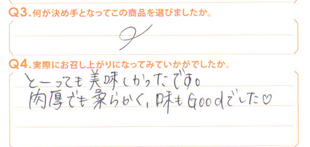 Q3.何が決め手となってこの商品を選びましたか。
Q4.実際にお召し上がりになってみていかがでしたか。
とーっても美味しかったです。
肉厚でも柔らかく,味もGoodでした♡